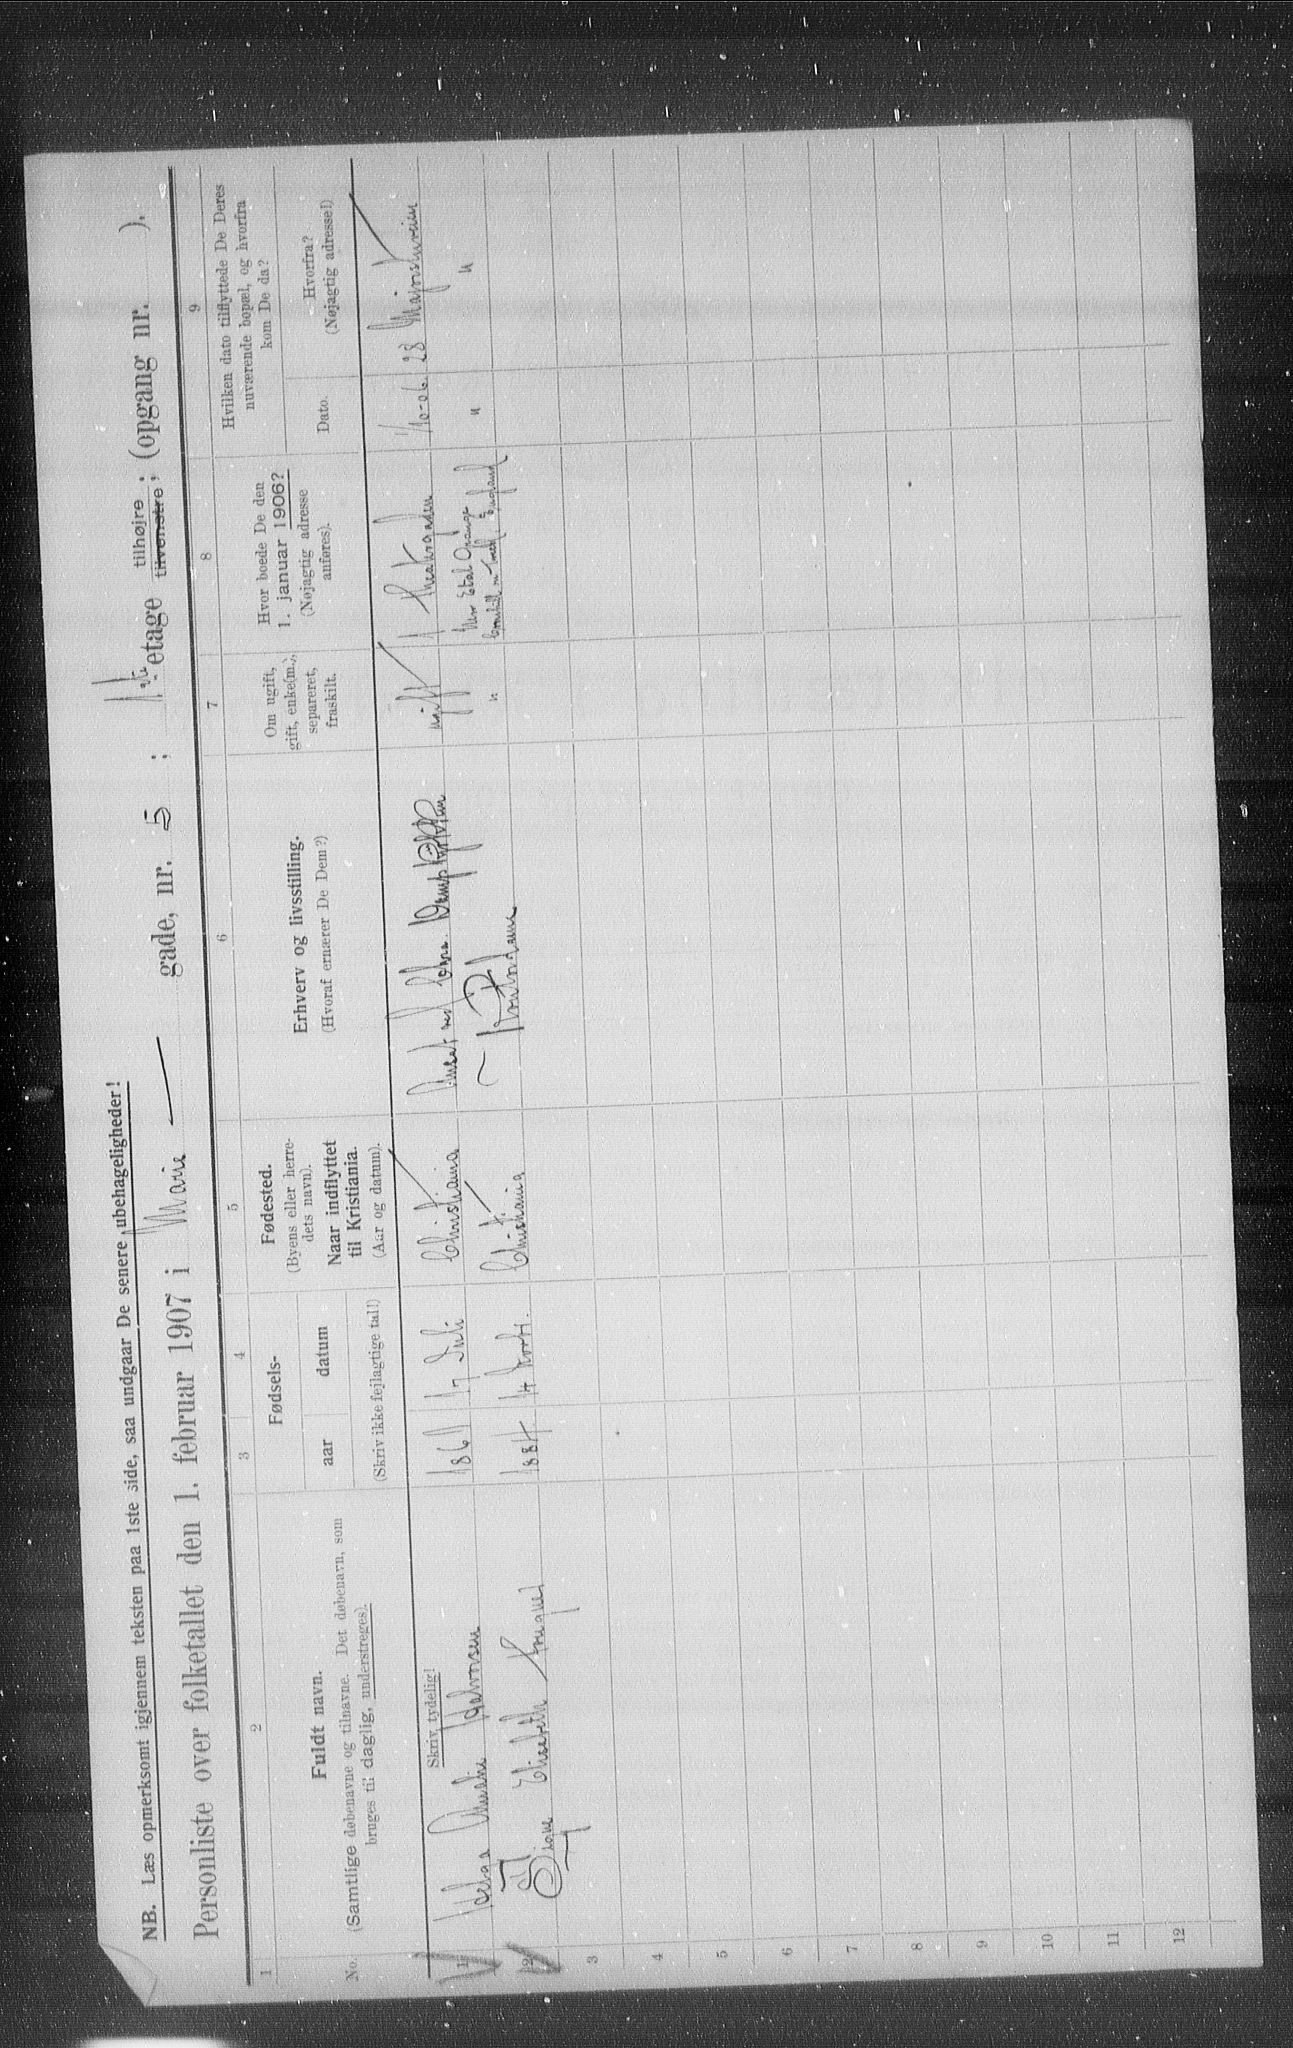 NB. Læs opmerksomt igjennem teksten paa 1ste side, saa undgaar De senere ubehageligheder!
Personliste over folketallet den 1. februar 1907 i Marie gade, nr. 5 ; 1ste etage tilhøjre ; (opgang nr. ).
tilvenstre ;
1 2 3 4 5 6 7 8 9
No.
Fuldt navn.
(Samtlige døbenavne og tilnavne. Det døbenavn, som
bruges til daglig, understreges).
Fødsels-
aar datum
(Skriv ikke fejlagtige tal!)
Fødested.
(Byens eller herre-
dets navn).
Naar indflyttet
til Kristiania.
(Aar og datum).
Erhverv og livsstilling.
(Hvoraf ernærer De Dem?)
Om ugift,
gift, enke(m.),
separeret,
fraskilt.
Hvor boede De den
1. januar 1906?
(Nøjagtig adresse
anføres).
Hvilken dato tilflyttede De Deres
nuværende bopæl, og hvorfra
kom De da?
Dato.
Hvorfra?
(Nøjagtig adresse!)
Skriv tydelig!
1 Helga Amalie Halvorsen 1861 17 Juli Christiania Ansat ved Chra. ugift Theatergaden 1/10-06. 28 Majorstuveien
2 Signe Elisabeth 1884. 14 Christiania Kontordame " England " "
3
4
5
6
7
8
9
10
11
12